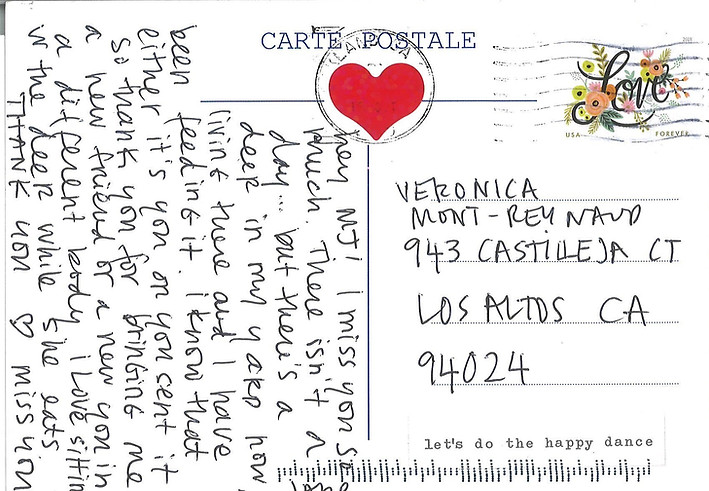 CARTE POSTALE
love
USA FOREVER
hey MJ! I miss you so
much. There isn't a
day... but there's a
deer in my yard now
living there and I have
been feeding it. i know that
either it's you or you sent it
so thank you for bringing me
a new friend or a new you in
a different body i love sitting
w the deer while she eats
THANK YOU ♡ miss you
VERONICA
MONT-REYNAUD
943 CASTILLEJA CT
LOS ALTOS CA
94024
let's do the happy dance